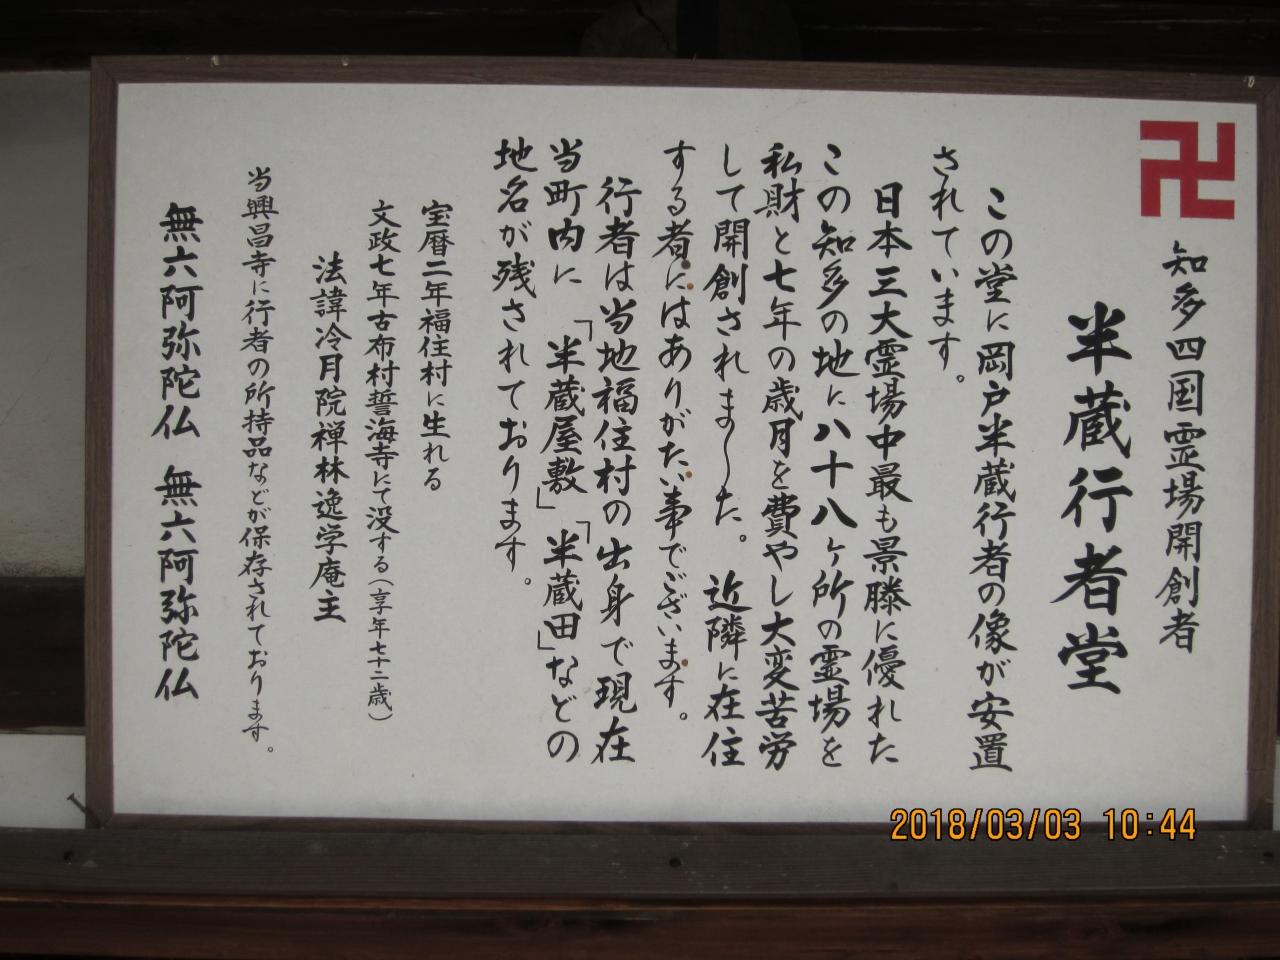 卍 知多四国霊場開創者
半蔵行者堂
この堂に岡戸半蔵行者の像が安置
されています。
日本三大霊場中最も景勝に優れた
この知多の地に八十八ヶ所の霊場を
私財と七年の歳月を費やし大変苦労
して開創されました。近隣に在住
する者にはありがたい事でございます。
行者は当地福住村の出身で現在
当町内に「半蔵屋敷」「半蔵田」などの
地名が残されております。
宝暦二年福住村に生れる
文政七年古布村誓海寺にて没する(享年七十二歳)
法諱冷月院禅林逸学庵主
当興昌寺に行者の所持品などが保存されております。
無六阿弥陀仏 無六阿弥陀仏
2018/03/03 10:44